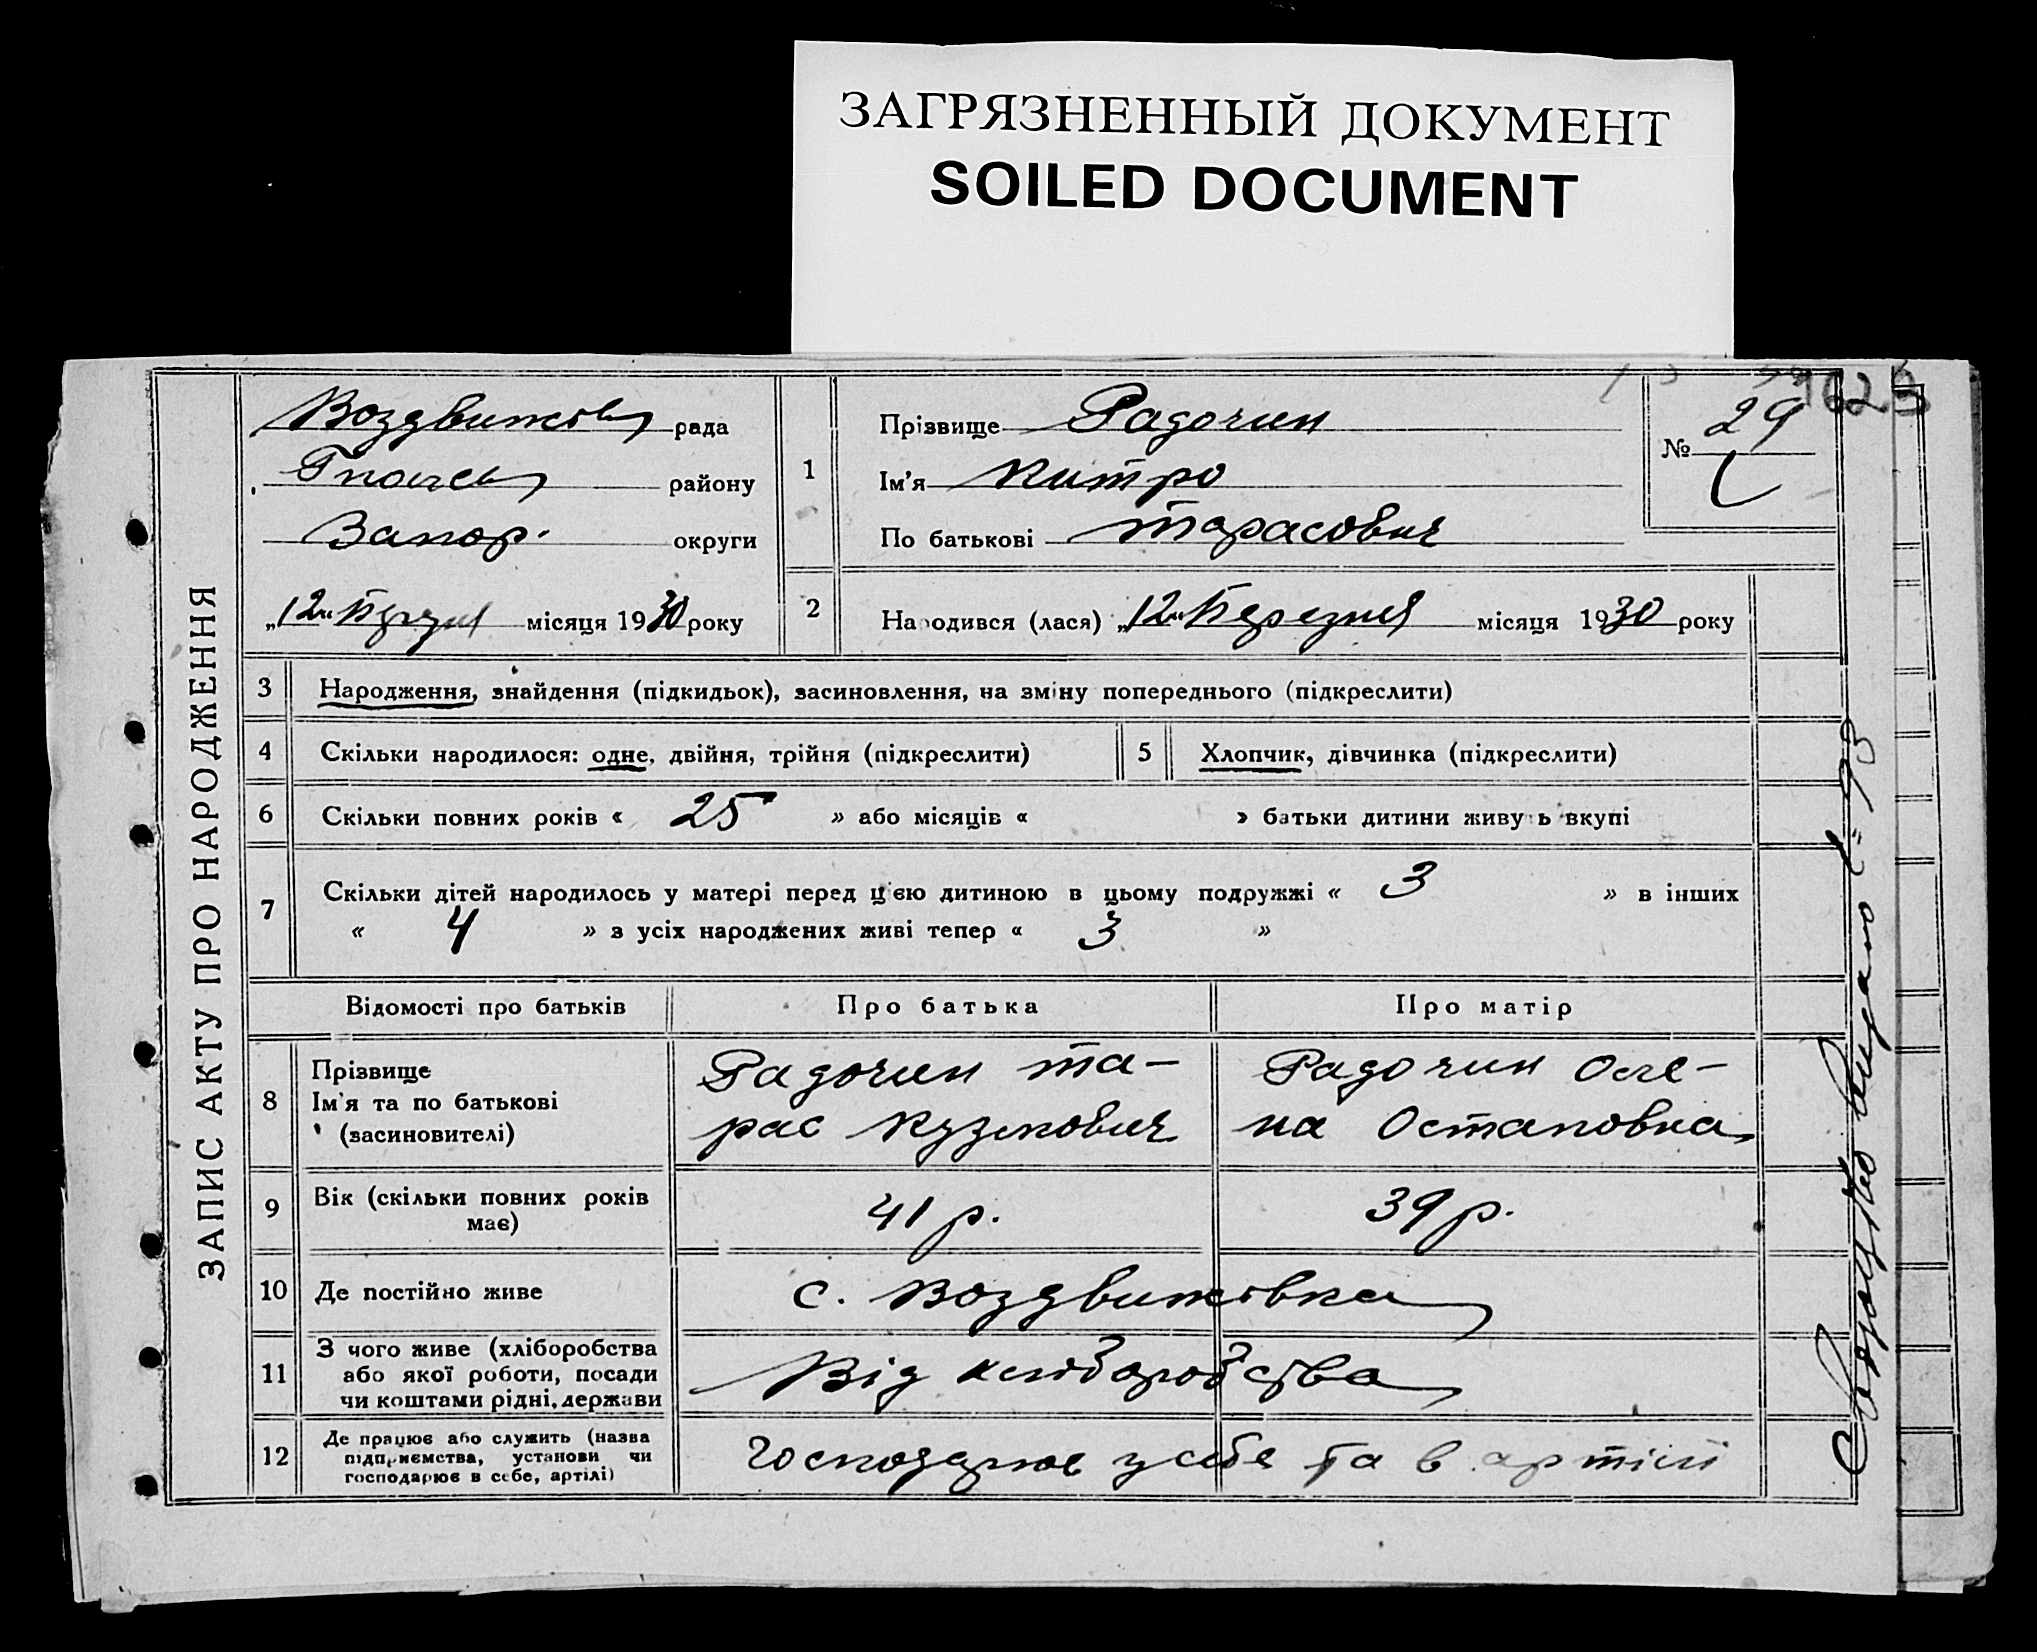 ЗАГРЯЗНЕННЫЙ ДОКУМЕНТ
SOILED DOCUMENT
ЗАПИС АКТУ ПРО НАРОДЖЕННЯ
рада
району
Запор. округи
„12“ Березня місяця 1930 року
1
Прізвище Радочин
Ім'я
По батькові Тарасович
№ 29
2
Народився (лася) „12“ Березня місяця 1930 року
3 Народження, знайдення (підкидьок), засиновлення, на зміну попереднього (підкреслити)
4 Скільки народилося: одне, двійня, трійня (підкреслити)
5 Хлопчик, дівчинка (підкреслити)
6 Скільки повних років « 25 » або місяців « » батьки дитини живуть вкупі
7 Скільки дітей народилось у матері перед цією дитиною в цьому подружжі « 3 » в інших
« 4 » з усіх народжених живі тепер « 3 »
Відомості про батьків Про батька Про матір
8
Прізвище
Ім'я та по батькові
(засиновителі)
Радочин Та-
рас Кузмович
Радочин Оле-
на Остаповна
9 Вік (скільки повних років
має)
41 р. 39 р.
10 Де постійно живе с. Воздвижівка
11 З чого живе (хліборобства
або якої роботи, посади
чи коштами рідні, держави
Від хліборобства
12 Де працює або служить (назва
підприємства, установи чи
господарює в себе, артілі)
Господарює у себе та в артілі